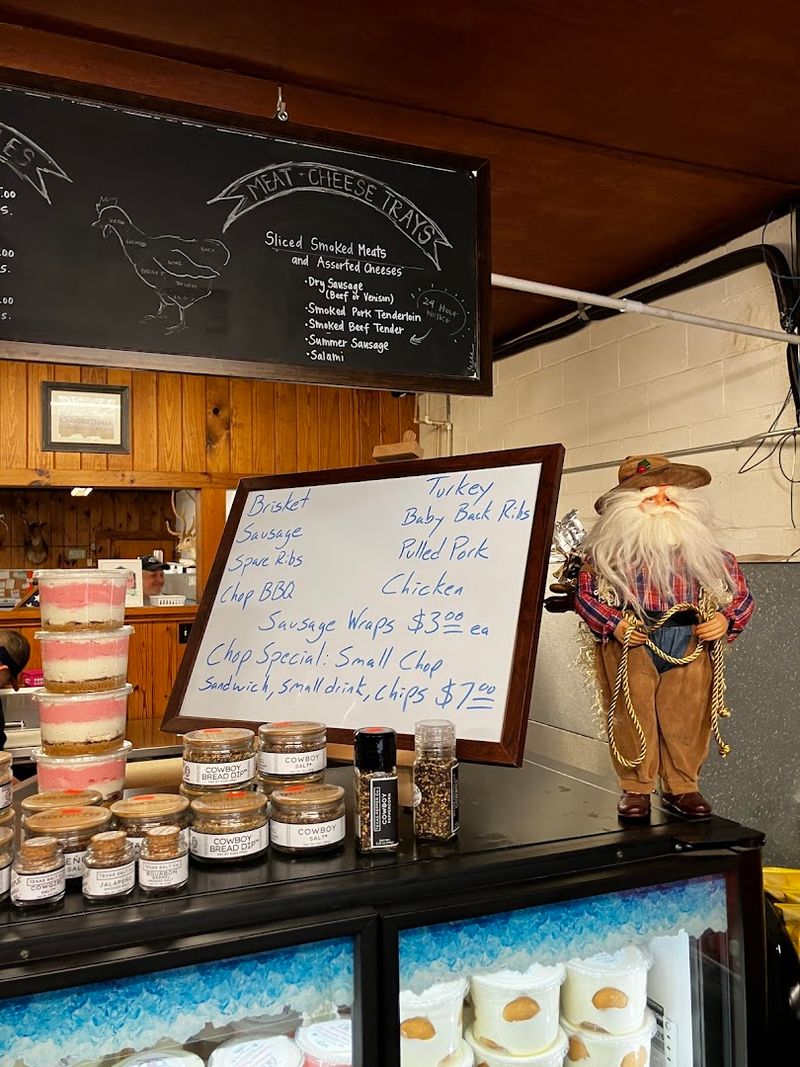 .00
s.
MEAT + CHEESE TRAYS
Sliced Smoked Meats
and Assorted Cheeses
• Dry Sausage
(Beef or Venison)
• Smoked Pork Tenderloin
• Smoked Beef Tender
• Summer Sausage
• Salami
24 Hour
Notice
BREAST
Smokehaus
Brisket
Sausage
Spare Ribs
Chop BBQ
Turkey
Baby Back Ribs
Pulled Pork
Chicken
Sausage Wraps $3.00 ea
Chop Special: Small Chop
Sandwich, Small drink, Chips $7.00
COWBOY
BREAD DIP™
COWBOY
SALT™
COWBOY
BREAD DIP™
COWBOY
SALT™
TEXAS SALT CO.
COWBOY
COWGIRL
TEXAS SALT CO.
JALAPEÑO
TEXAS SALT CO.
BOURBON
BARREL